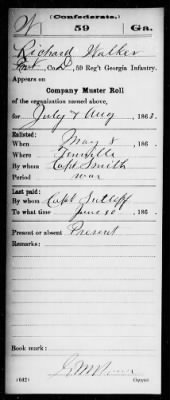 W (Confederate.) 59 Ga.
Richard Walker
Pvt, Co. D, 59 Reg't Georgia Infantry.
Appears on
Company Muster Roll
of the organization named above,
for July & Aug, 1863.
Enlisted:
When May 8, 186 .
Where Tennille
By whom Capt Smith
Period war
Last paid:
By whom Capt
To what time June 30, 186 .
Present or absent Present
Remarks:
Book mark:
(642)
Copyist.